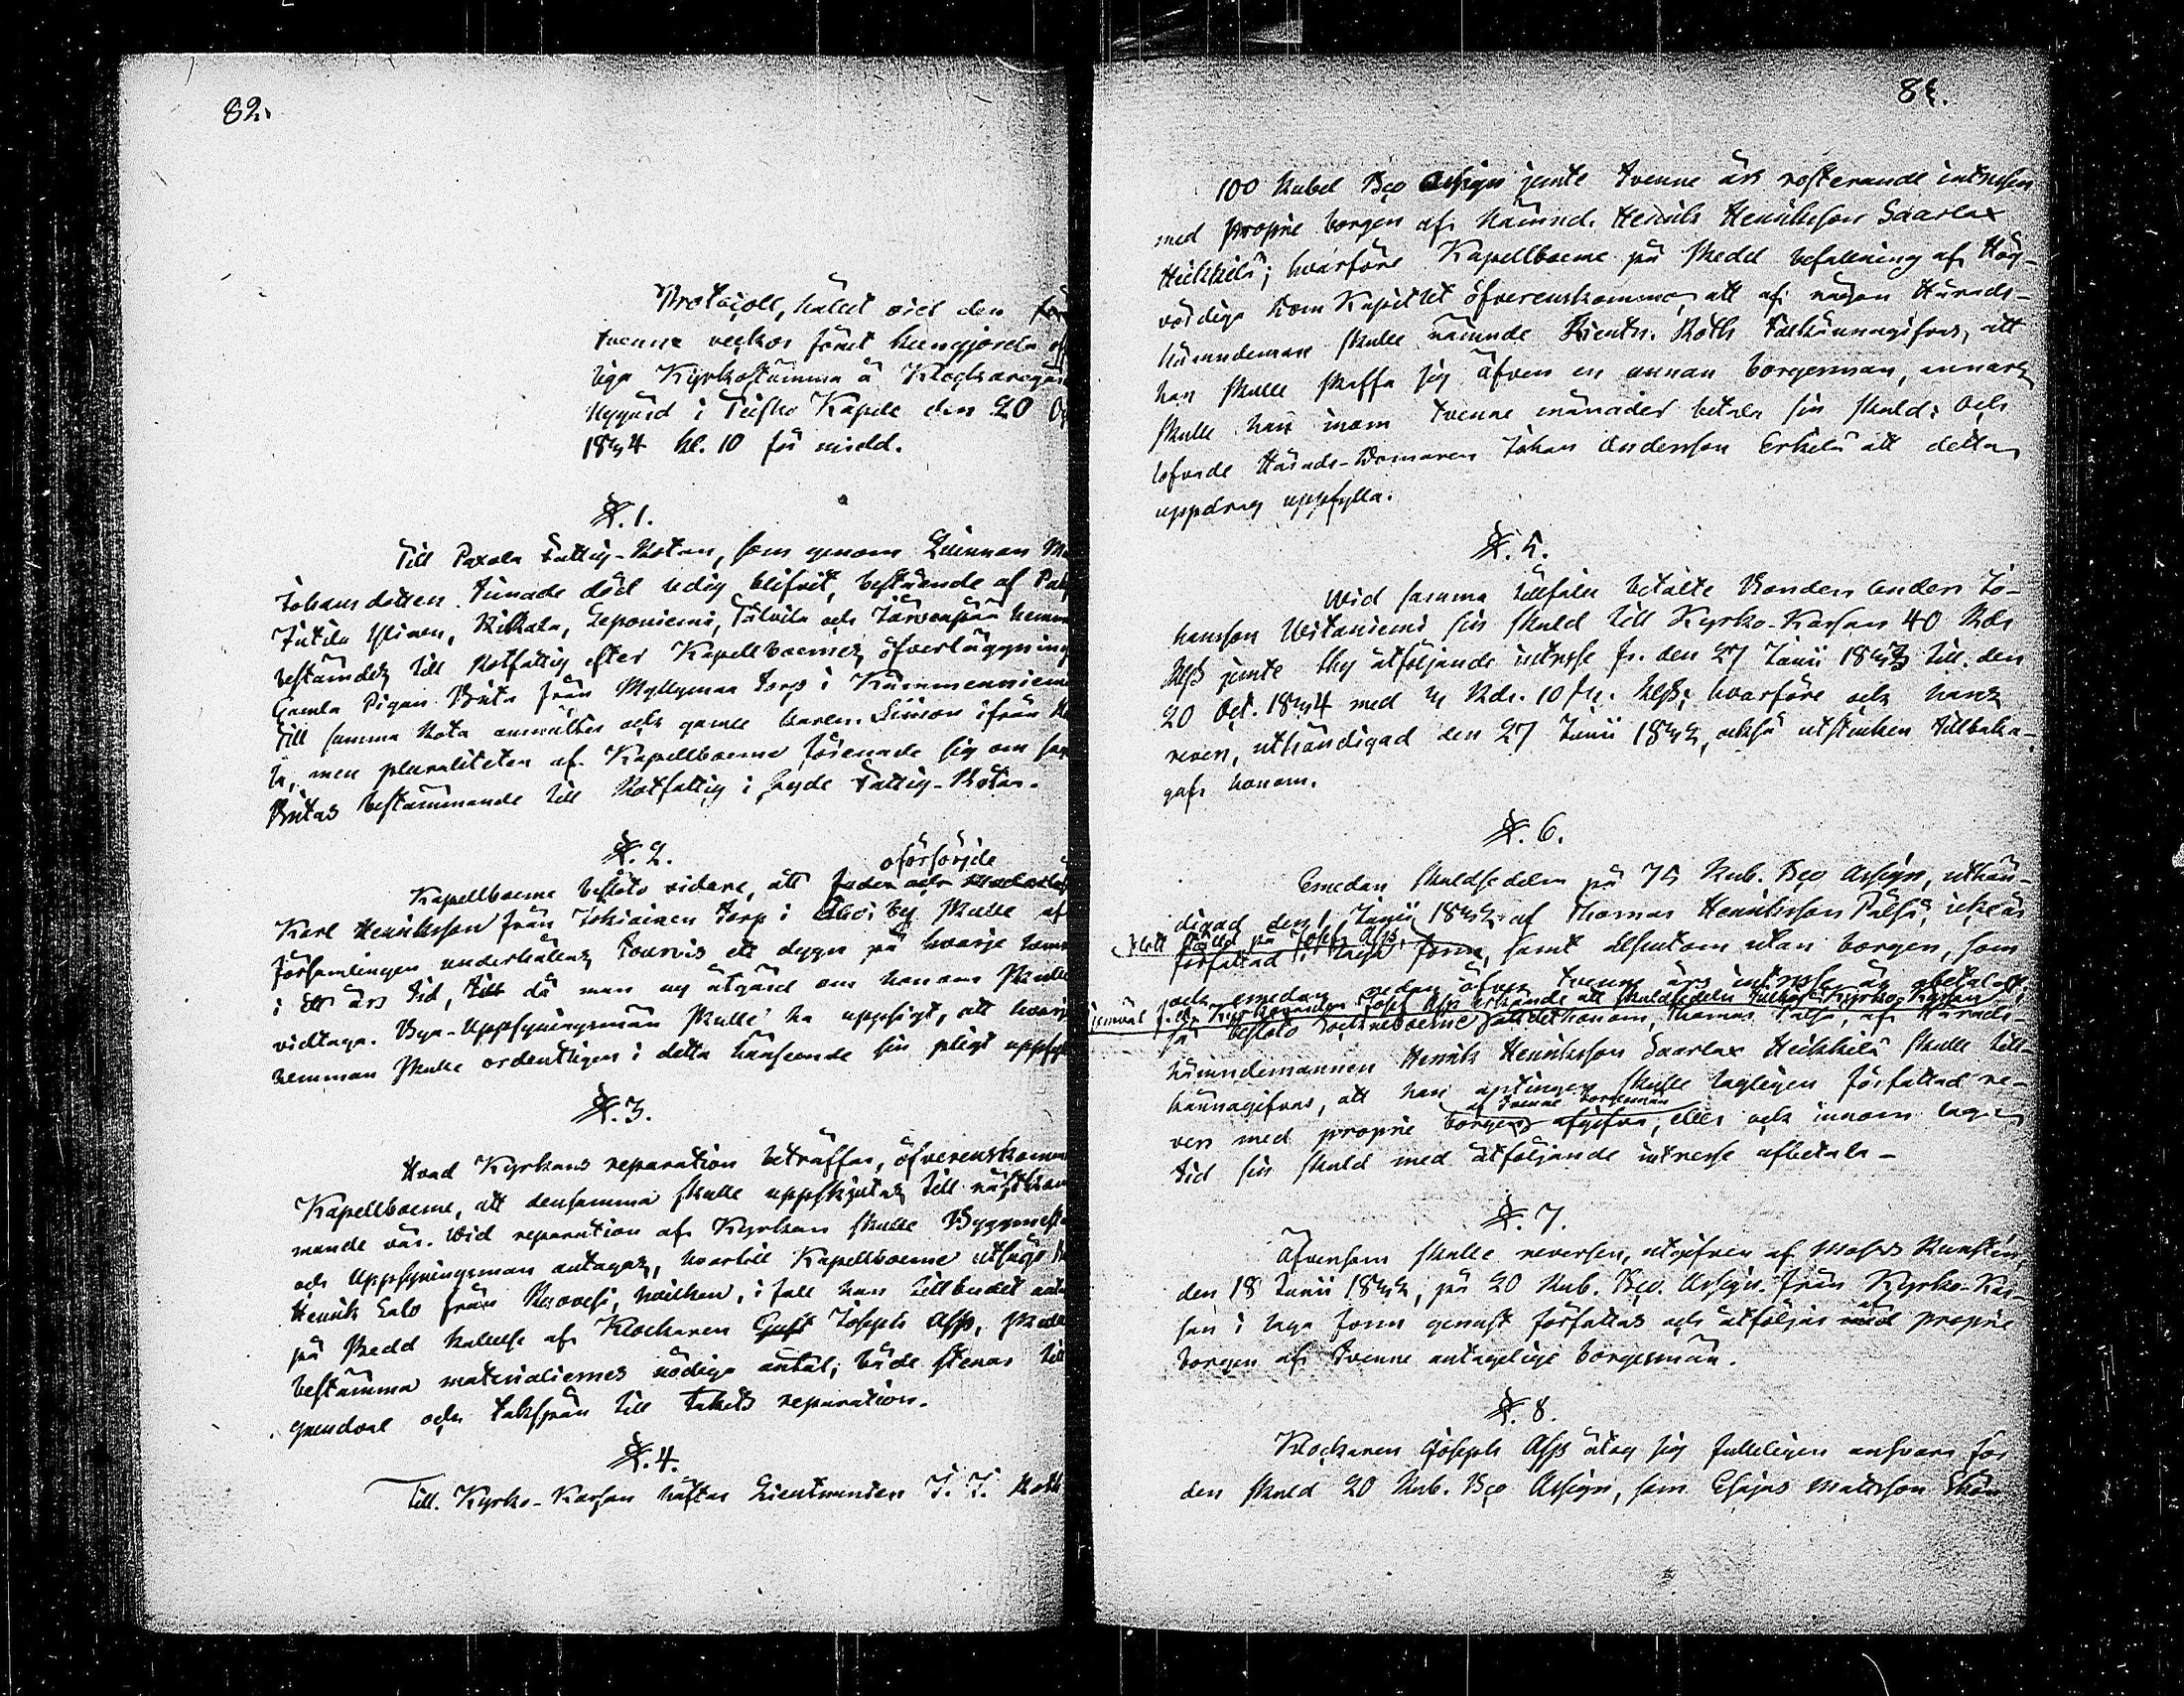 82.
Protocoll, hållet vid den
tvenne veckor förut kungjorda
liga Kyrkostämma å Klockaregår
Nygård i Teisko Kapell den 20
1844 kl. 10 för midd.
§. 1.
Till Paxola Fattig-Rotan, som genom Qvinnan
Johansdotters timade död ledig blifvit, bestående af
Jutila Ylinen, Leponiemi, och Järvenpää
bestämdes till Rotfattig efter Kapellboernes öfverläggning
Gamla Pigan från Myllymaa torp i
Till samma Rota anmältes och gamle karlen Simon ifrån
la, men pluraliteten af Kapellboerne förenade sig om
bestämmande till Rotfattig i Fattig-Rotan.
§. 2.
oförsörjde
Kapellboerne besloto vidare, att
Karl Henriksson från torp i by skulle af
församlingen underhållas tourvis ett dygn på hvarje
i ett års tid, då man ny åtgärd om honom skulle
vidtaga. Bya-Uppsyningsmän skulle ha uppsigt, att
hemman skulle ordentligen i detta hänseende sin pligt
§. 3.
Hvad Kyrkans reparation beträffar, öfverenskommo
Kapellboerne, att densamma skulle uppskjutas till
mande vår. Wid reparation af Kyrkan skulle
och Uppsyningsman antagas, hvartill Kapellboerne
Henrik Salo från Ruovesi, hvilken, i fall han tillbudet
på skedd kallelse af Klockaren Joseph Asp,
bestämma materialiernes nödiga antal, både stenar
grundval och takspån till takets reparation.
§. 4.
Till Kyrko-Kassan häftar Lieutnanten J. J. Roth
84.
100 Rubel Bco Assign jemte tvenne års resterande intressen
med proprie borgen af Nämnd. Henrik Henriksson Saarlax
Heikkilä; hvarföre Kapellboerne på skedd befallning af Hög-
vördiga Dom Kapitlet öfverenskommo, att af någon Härads-
nämndeman skulle nämnde Lieutn. Roth tillkännagifvas, att
han skulle skaffa sig äfven en annan borgesman, annars
skulle han inom tvenne månader betala sin skuld. Och
lofvade Härads-Domaren Johan Andersson Erkilä att detta
uppdrag uppfylla.
§. 5.
Wid samma tillfälle betalte Bonden Anders Jo-
hansson sin skuld till Kyrko-Kassan 40 Rdr
jemte thy åtföljande intresse fr. den 27 Junii till den
20 Oct. 1844 med 4 Rdr. 10 hvarföre och hans
revers, uthändigad den 27 Junii också utstruken tillbaka-
gafs honom.
§. 6.
Emedan skuldsedeln på 75 Rub. Bco Assign, uthän-
digad den 1 Junii af Thomas Henriksson icke är
ställd på Joseph Asp,
författad i laga form, samt dessutom utan borgen, som
och emedan redan öfver tvenne års intresse är obetalt,
Joseph Asp erkände att skuldsedeln tillhör Kyrko-Kassan
så besloto Sockneboerne att det honom, Thomas af Härads-
nämndemannen Henrik Henriksson Saarlax Heikkilä skulle till-
kännagifvas, att han antingen skulle lagligen författad re-
af tvenne borgesmän
vers med proprie borgen afgifva, eller och innom laga
tid sin skuld med åtföljande intresse afbetala -
§. 7.
Äfvensom skulle reversen, utgifven af
den 18 Junii på 20 Rub. Bco. Assign. från Kyrko-Kas-
san i laga form genast författas och åtföljas af proprie
borgen af tvenne antagelige borgesmän.
§. 8.
Klockaren Joseph Asp åtog sig fulleligen ansvara för
den skuld 20 Rub. Bco Assign, som Esajas Mattsson